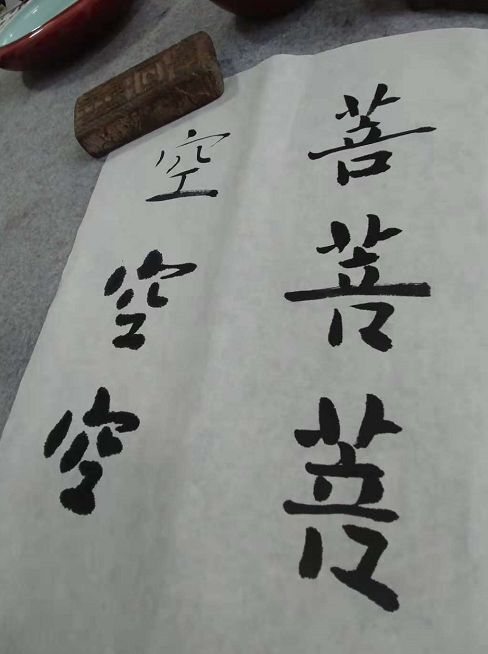 菩菩菩
空空空